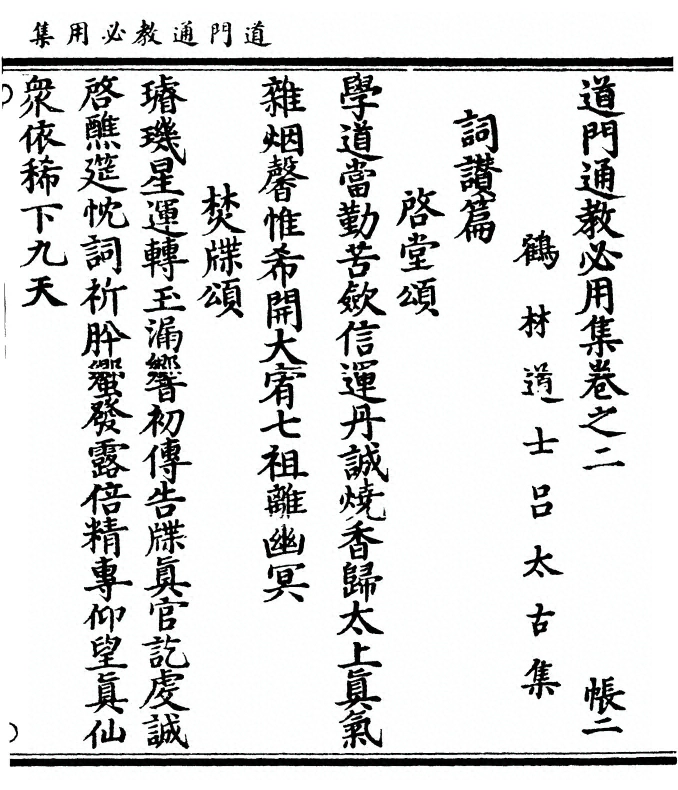 道門通教必用集
道門通教必用集卷之二 帳二
鶴林道士呂太古集
詞讃篇
啓堂頌
學道當勤苦歛信運丹誠燒香歸太上眞氣
雜烟馨惟希開大宥七祖離幽冥
焚牒頌
璿璣星運轉玉漏響初傳告牒眞官訖虔誠
啓醮筵忱詞祈肸蠁發露倍精專仰望眞仙
衆依稀下九天